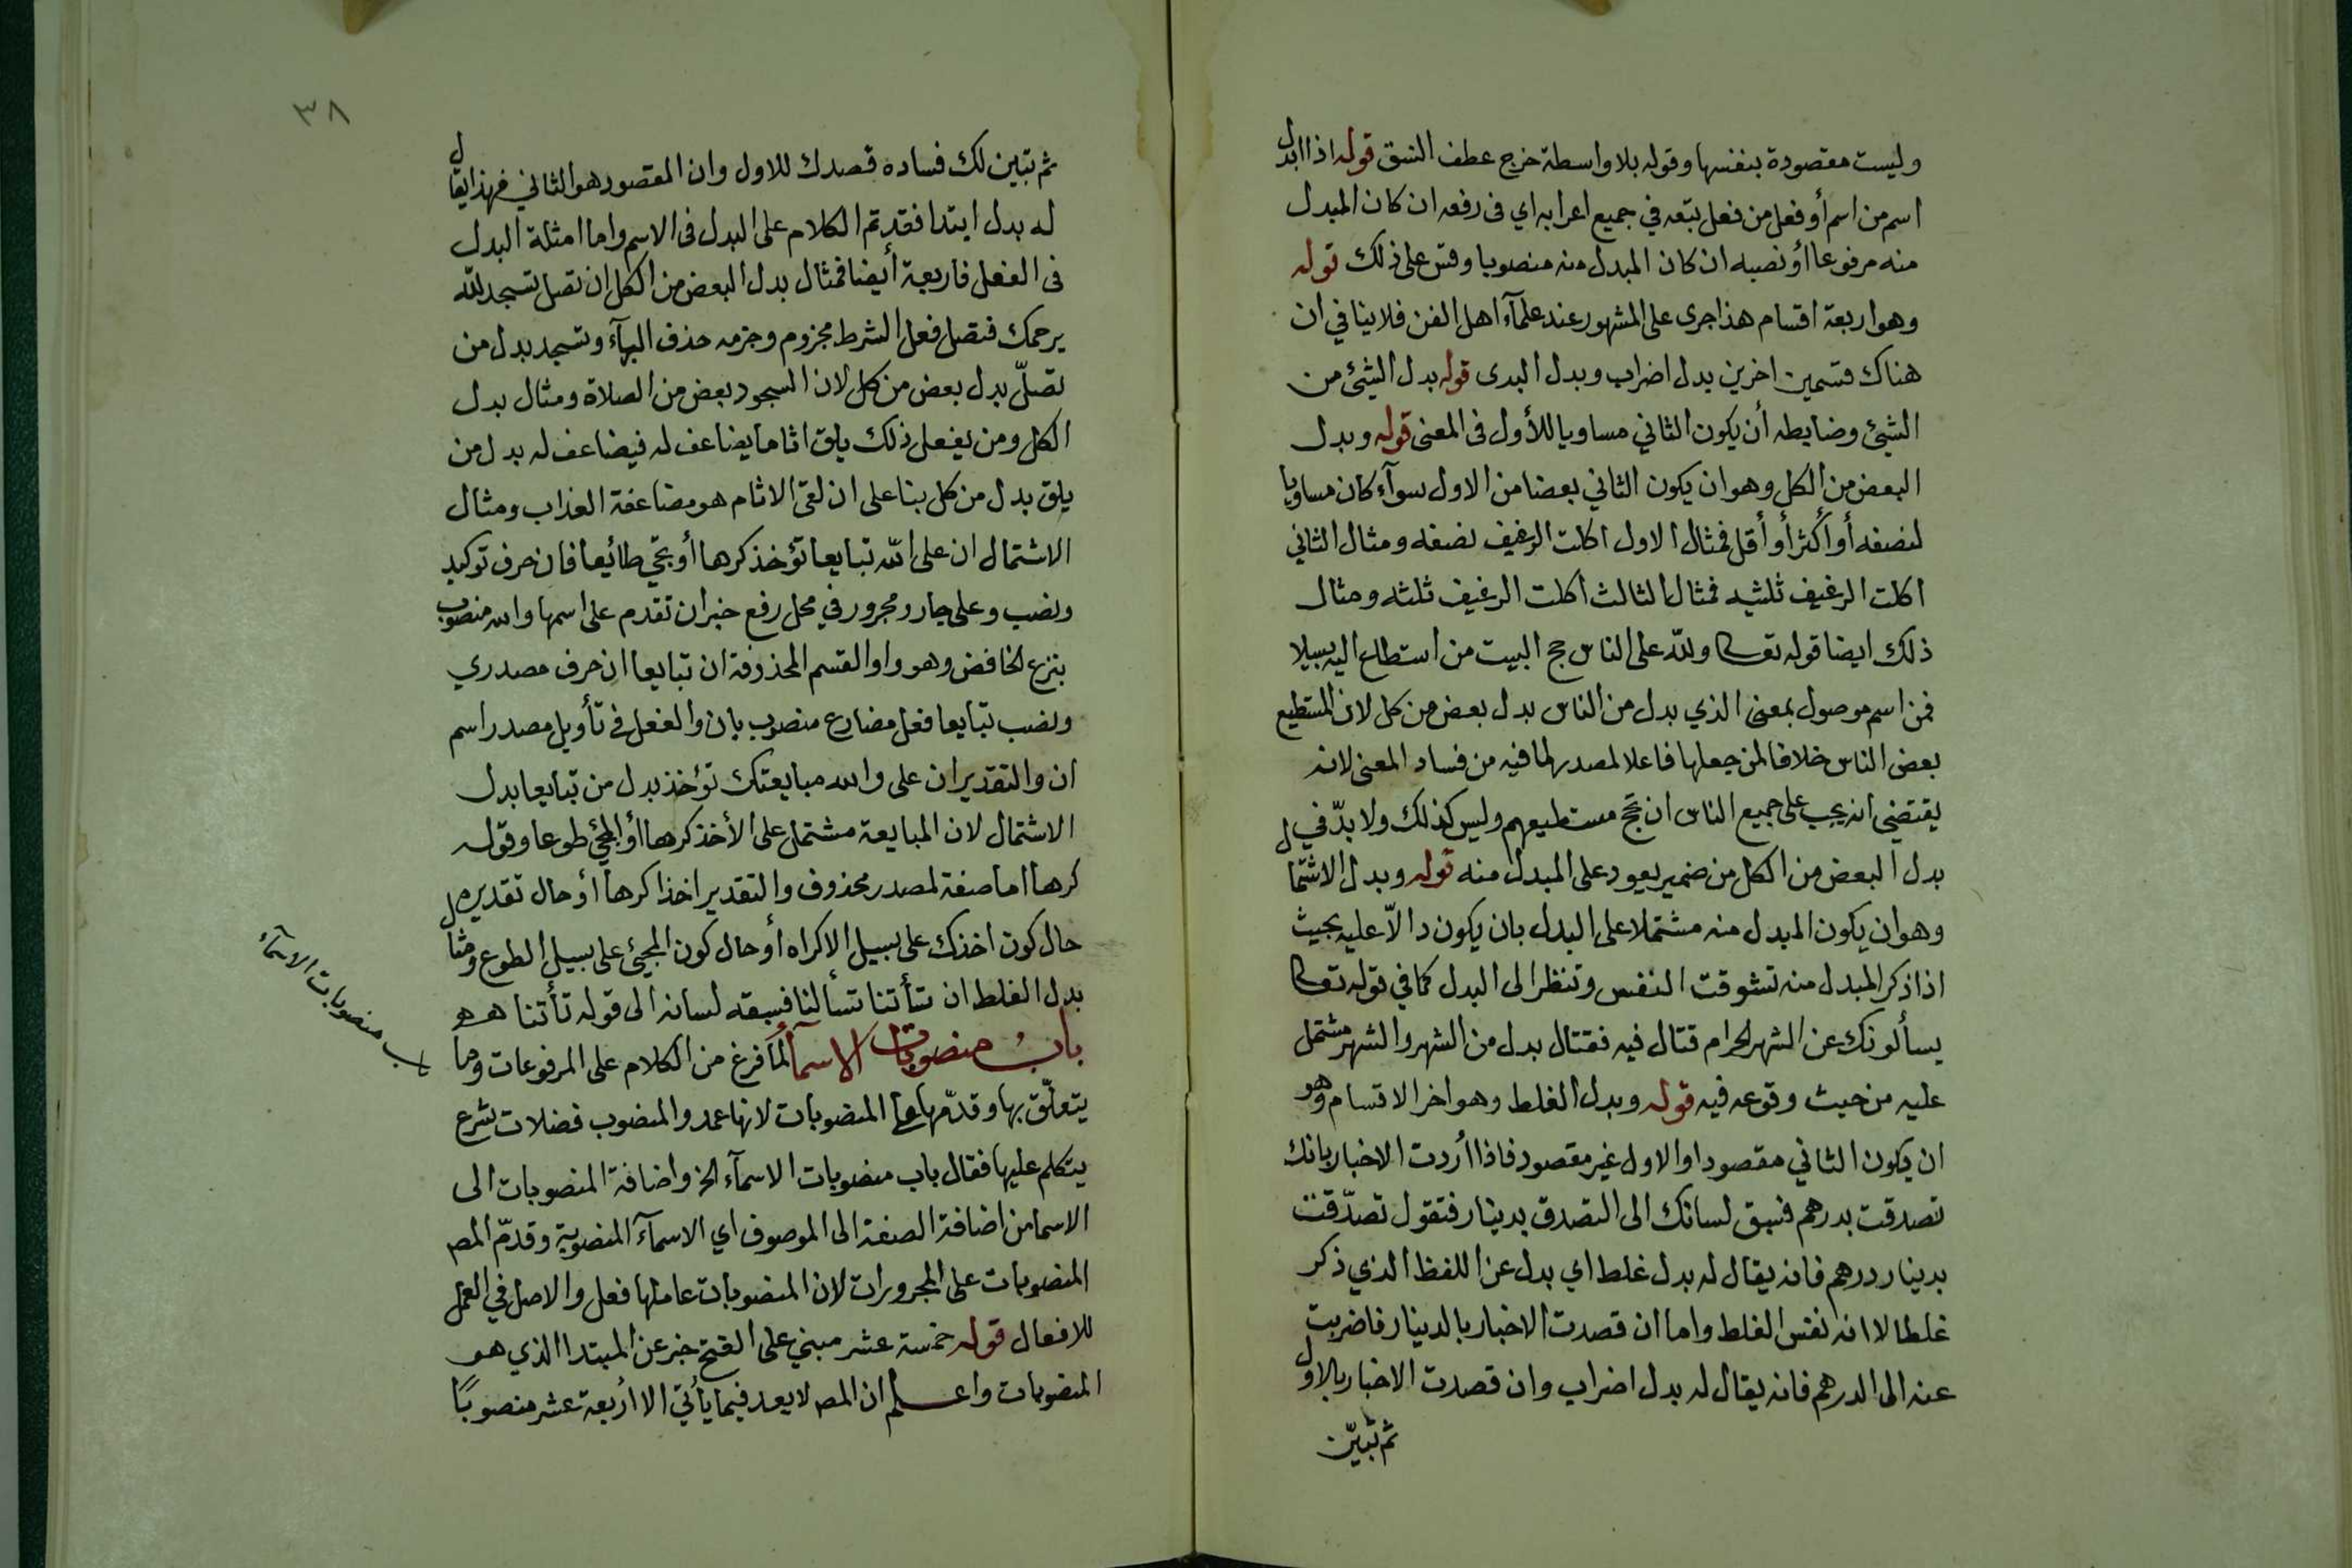 وليست مقصودة بنفسها وقوله بلا واسطة خرج عطف النسق قوله اذا ابدل
اسم من اسم أو فعل من فعل تبعه في جميع اعرابه اي في رفعه ان كان المبدل
منه مرفوعا أو نصبه ان كان المبدل منه منصوبا وقس على ذلك قوله
وهو اربعة اقسام هذا جرى على المشهور عند علمآء اهل الفن فلا ينافي ان
هناك قسمين اخرين بدل اضراب وبدل البدى قوله بدل الشئ من
الشئ وضابطه أن يكون الثاني مساويا للأول في المعنى قوله وبدل
البعض من الكل وهو ان يكون الثاني بعضا من الاول سوآء كان مساويا
لنصفه أو أكثر أو أقل فمثال الاول اكلت الرغيف نصفه ومثال الثاني
اكلت الرغيف ثلثيه فمثال الثالث اكلت الرغيف ثلثه ومثال
ذلك ايضا قوله تعالى ولله على الناس حج البيت من استطاع اليه سبيلا
فمن اسم موصول بمعنى الذي بدل من الناس بدل بعض من كل لان المستطيع
بعض الناس خلافا لمن جعلها فاعلا لمصدر لما فيه من فساد المعنى لانه
يقتضي انه يجب على جميع الناس ان يحج مستطيعهم وليس كذلك ولا بدّ في
بدل البعض من الكل من ضمير يعود على المبدل منه قوله وبدل الاشتمال
وهو ان يكون المبدل منه مشتملا على البدل بان يكون دالاّ عليه بحيث
اذا ذكر المبدل منه تشوقت النفس وتنظر الى البدل كما في قوله تعالى
يسألونك عن الشهر الحرام قتال فيه فقتال بدل من الشهر والشهر مشتمل
عليه من حيث وقوعه فيه قوله وبدل الغلط وهو اخر الاقسام وهو
ان يكون الثاني مقصودا والاول غير مقصود فاذا أردت الاخبار بانك
تصدقت بدرهم فسبق لسانك الى التصدق بدينار فتقول تصدّقت
بدينار درهم فانه يقال له بدل غلط اي بدل عن اللفظ الذي ذكر
غلطا لا انه نفس الغلط واما ان قصدت الاخبار بالدينار فاضربت
عنه الى الدرهم فانه يقال له بدل اضراب وان قصدت الاخبار بالاول
ثم تبيّن
٣٨
ثم تبين لك فساده قصدك للاول وان المقصود هو الثاني فهذا يقال
له بدل ابتدا فقد تم الكلام على البدل في الاسم واما امثلة البدل
في الفعل فاربعة أيضا فمثال بدل البعض من الكل ان تصل تسجد لله
يرحمك فتصل فعل الشرط مجزوم وجزمه حذف اليآء وتسجد بدل من
تصلّ بدل بعض من كل لان السجود بعض من الصلاة ومثال بدل
الكل ومن يفعل ذلك يلق اثاما يضاعف له فيضاعف له بدل من
يلق بدل من كل بنا على ان لقى الاثام هو مضاعفة العذاب ومثال
الاشتمال ان على الله تبايعا تؤخذ كرها أو تجئ طائعا فان حرف توكيد
ونصب وعلى جار ومجرور في محل رفع خبر ان تقدم على اسمها والله منصوب
بنزع الخافض وهو واو القسم المحذوفة ان تبايعا ان حرف مصدري
ونصب تبايعا فعل مضارع منصوب بان والفعل في تأويل مصدر اسم
ان والتقدير ان على والله مبايعتك تؤخذ بدل من تبايعا بدل
الاشتمال لان المبايعة مشتمل على الأخذ كرها أو المجئ طوعا وقوله
كرها اما صفة لمصدر محذوف والتقدير اخذا كرها أو حال تقديره
حال كون اخذك على سبيل الاكراه أو حال كون المجيئ على سبيل الطوع ومثال
بدل الغلط ان تأتنا تسألنا فسبقه لسانه الى قوله تأتنا هه
باب منصوبات الاسمآ لما فرغ من الكلام على المرفوعات وما
يتعلّق بها وقدّمها على المنصوبات لانها عمد والمنصوب فضلات شرع
يتكلم عليها فقال باب منصوبات الاسمآء الخ واضافة المنصوبات الى
الاسما من اضافة الصفة الى الموصوف اي الاسمآء المنصوبة وقدّم المص
المنصوبات على المجرورات لان المنصوبات عاملها فعل والاصل في العمل
للافعال قوله خمسة عشر مبني على الفتح خبر عن المبتدا الذي هو
المنصوبات واعلم ان المص لا يعد فيما يأتي الا أربعة عشر منصوبًا
ب منصوبات الاسمآء